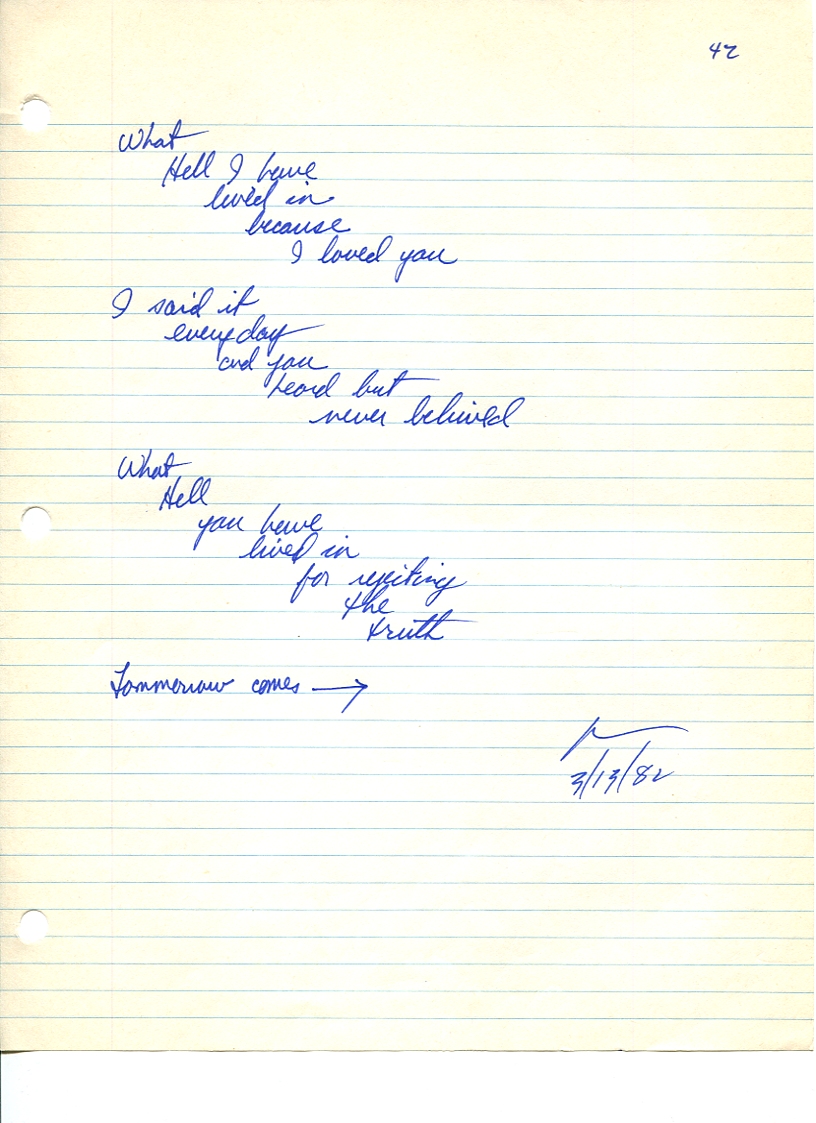 42
What
Hell I have
lived in
because
I loved you
I said it
everyday
and you
heard but
never belived
What
Hell
you have
lived in
for rejeiting
the
truth
Tommorrow comes →
3/13/82